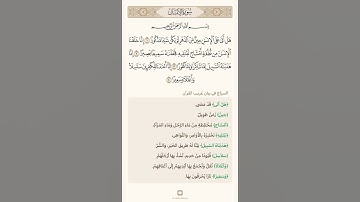 سورة الإنسان
بسم الله الرحمن الرحيم
هل أتى على الإنسان حين من الدهر لم يكن شيئا مذكورا ① إنا خلقنا
الإنسان من نطفة أمشاج نبتليه فجعلناه سميعا بصيرا ② إنا
هديناه السبيل إما شاكرا وإما كفورا ③ إنا أعتدنا للكافرين سلاسلا
وأغلالا وسعيرا ④
السراج في بيان غريب القرآن
﴿هل أتى﴾ قد مضى.
﴿حين﴾ زمن طويل.
﴿أمشاج﴾ مختلطة من ماء الرجل وماء المرأة.
﴿نبتليه﴾ نختبره بالأوامر والنواهي.
﴿هديناه السبيل﴾ بينا له طريق الخير، والشر.
﴿سلاسل﴾ قيودا من حديد تشد بها أرجلهم.
﴿وأغلالا﴾ تغل وتجمع بها أيديهم إلى أعناقهم.
﴿وسعيرا﴾ نارا يحرقون بها.